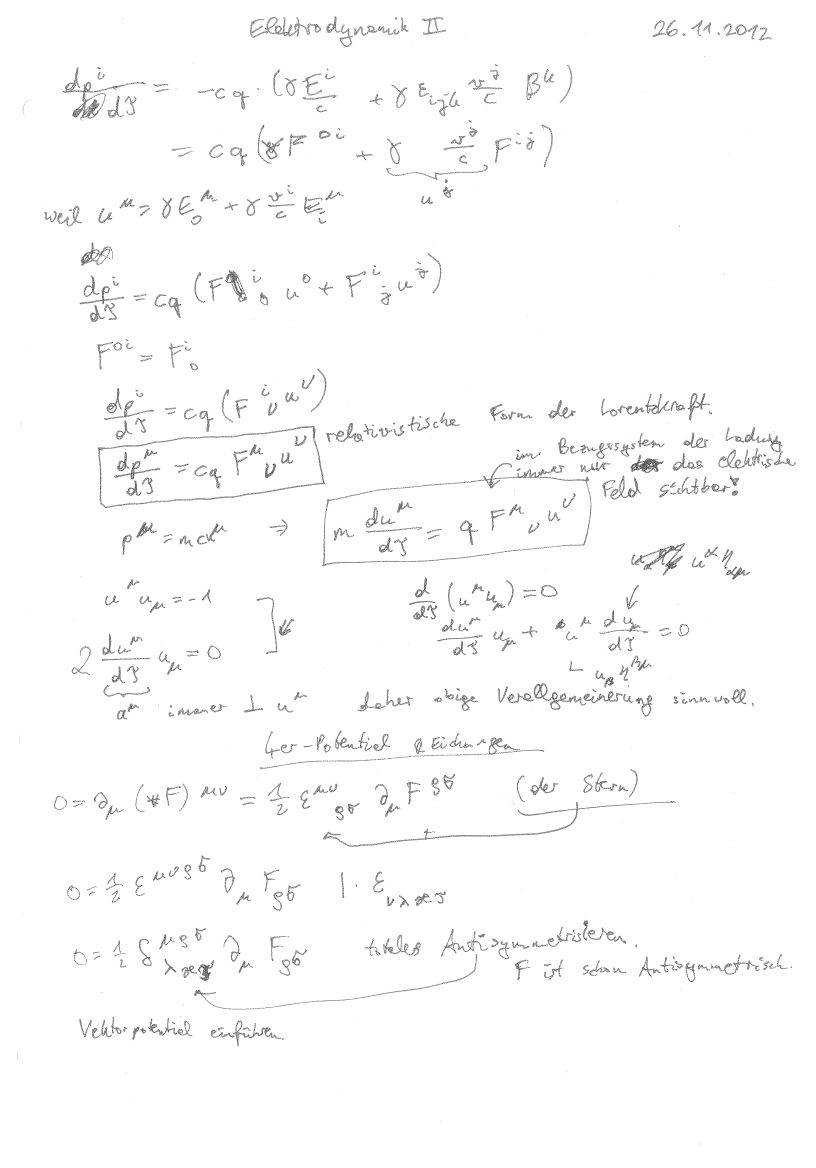 Elektrodynamik II 26.11.2012
dpⁱ/dτ = -cq · (γ Eⁱ/c + γ ε_ijk vʲ/c Bᵏ)
= cq (γ F⁰ⁱ + γ vʲ/c Fⁱʲ)
uʲ
weil u^μ = γ E₀^μ + γ vⁱ/c E_i^μ
dpⁱ/dτ = cq (Fⁱ₀ u⁰ + Fⁱ_j uʲ)
F⁰ⁱ = Fⁱ₀
dpⁱ/dτ = cq (Fⁱ_ν u^ν)
relativistische Form der Lorentzkraft.
dp^μ/dτ = cq F^μ_ν u^ν
im Bezugssystem der Ladung
immer nur das elektrische
Feld sichtbar!
p^μ = mcu^μ ⇒ m du^μ/dτ = q F^μ_ν u^ν
u^α η_αμ
u^μ u_μ = -1
d/dτ (u^μ u_μ) = 0
du^μ/dτ u_μ + u^μ du_μ/dτ = 0
2 du^μ/dτ u_μ = 0
u_β η^βμ
a^μ immer ⊥ u^μ daher obige Verallgemeinerung sinnvoll.
4er-Potential & Eichungen
0 = ∂_μ (*F)^μν = 1/2 ε^μν_ρσ ∂_μ F^ρσ (der Stern)
0 = 1/2 ε^μνρσ ∂_μ F_ρσ | · ε_νλκτ
0 = 1/2 δ^μρσ_λκτ ∂_μ F_ρσ totales Antisymmetrisieren.
F ist schon Antisymmetrisch.
Vektorpotential einführen.